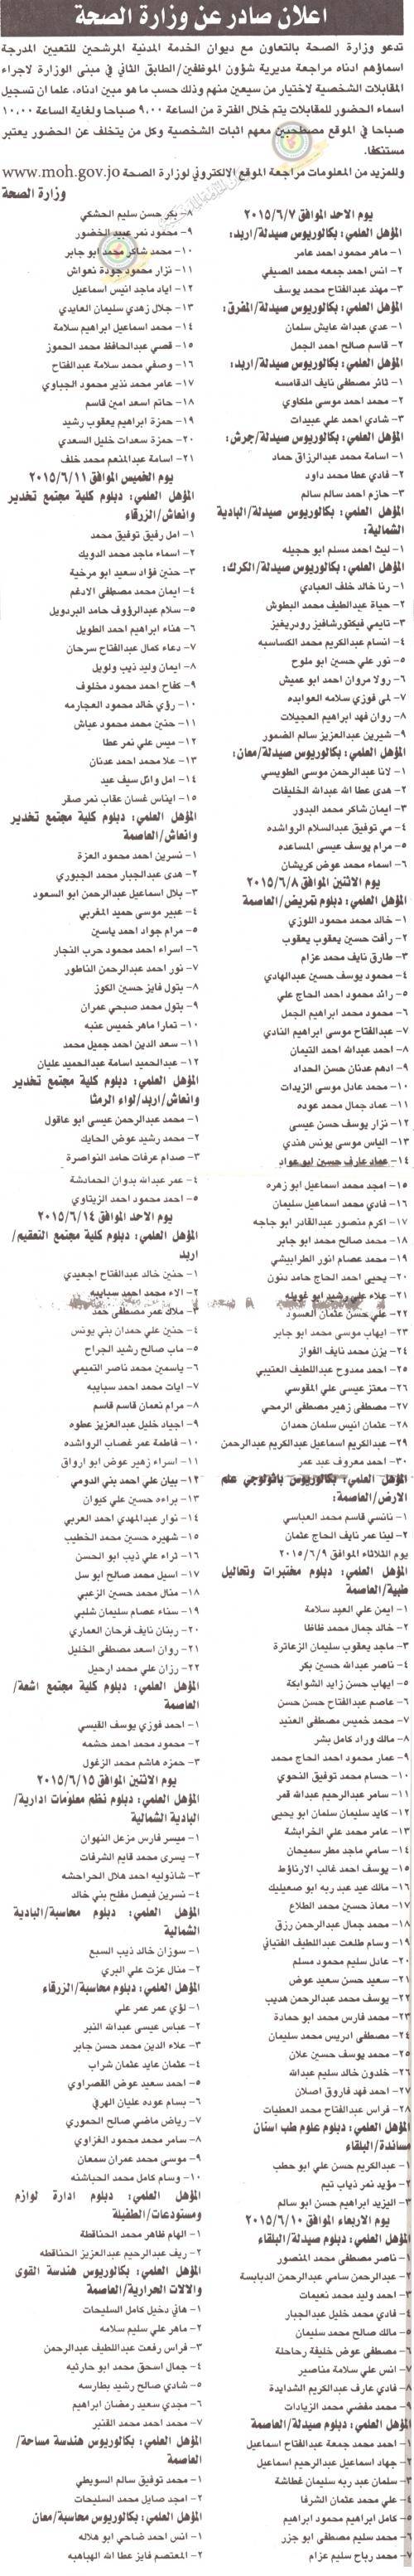 اعلان صادر عن وزارة الصحة
تدعو وزارة الصحة بالتعاون مع ديوان الخدمة المدنية المرشحين للتعيين المدرجة
اسماؤهم ادناه مراجعة مديرية شؤون الموظفين/الطابق الثاني في مبنى الوزارة لاجراء
المقابلات الشخصية لاختيار من سيعين منهم وذلك حسب ما هو مبين ادناه، علما ان تسجيل
اسماء الحضور للمقابلات يتم خلال الفترة من الساعة ٩.٠٠ صباحا ولغاية الساعة ١٠.٠٠
صباحا في الموقع مصطحبين معهم اثبات الشخصية وكل من يتخلف عن الحضور يعتبر
مستنكفا.
وللمزيد من المعلومات مراجعة الموقع الالكتروني لوزارة الصحة www.moh.gov.jo
وزارة الصحة
يوم الاحد الموافق ٢٠١٥/٦/٧
المؤهل العلمي: بكالوريوس صيدلة/اربد:
١- ماهر محمود احمد عامر
٢- انس احمد جمعه محمد الصيفي
٣- مهند عبدالفتاح محمد يوسف
المؤهل العلمي: بكالوريوس صيدلة/المفرق:
١- عدي عبدالله عايش سلمان
٢- قاسم صالح احمد الجمل
المؤهل العلمي: بكالوريوس صيدلة/اربد:
١- ثائر مصطفى نايف الدقامسه
٢- محمد احمد موسى ملكاوي
٣- شادي احمد علي عبيدات
المؤهل العلمي: بكالوريوس صيدلة/جرش:
١- اسامة محمد عبدالرزاق حماد
٢- فادي عطا محمد داود
٣- حازم احمد سالم سالم
المؤهل العلمي: بكالوريوس صيدلة/البادية
الشمالية:
١- ليث احمد مسلم ابو حجيله
المؤهل العلمي: بكالوريوس صيدلة/الكرك:
١- رنا خالد خلف العبادي
٢- حياة عبداللطيف محمد البطوش
٣- تايمي فيكتورشافيز رودريغيز
٤- انسام عبدالكريم محمد الكساسبه
٥- نور علي حسين ابو ملوح
٦- رولا مروان احمد ابو عميش
٧- لمى فوزي سلامه العوابده
٨- روان فهد ابراهيم العجيلات
٩- شيرين عبدالعزيز سالم الضمور
المؤهل العلمي: بكالوريوس صيدلة/معان:
١- لانا عبدالرحمن موسى الطويسي
٢- هدى عطا الله عبدالله الخليفات
٣- ايمان شاكر محمد البدور
٤- مي توفيق عبدالسلام الرواشده
٥- مرام يوسف عيسى المساعده
٦- اسماء محمد عوض كريشان
يوم الاثنين الموافق ٢٠١٥/٦/٨
المؤهل العلمي: دبلوم تمريض/العاصمة
١- خالد محمد محمود اللوزي
٢- رأفت حسين يعقوب يعقوب
٣- طارق نايف محمد عزام
٤- محمود يوسف حسين عبدالهادي
٥- رائد محمود احمد الحاج علي
٦- محمود محمد ابراهيم الجمل
٧- عبدالفتاح موسى ابراهيم النادي
٨- احمد عبدالله احمد التيمان
٩- ادهم عدنان حسن الحداد
١٠- محمد عادل موسى الزيدات
١١- عماد جمال محمد عوده
١٢- نزار يوسف حسن عيسى
١٣- الياس موسى يونس هندي
١٤- عماد عارف حسين ابو عواد
١٥- امجد محمد اسماعيل ابو زهره
١٦- فادي محمد اسماعيل سليمان
١٧- اكرم منصور عبدالقادر ابو جاجه
١٨- محمد صالح محمد ابو جابر
١٩- محمد عصام انور الطرابيشي
٢٠- يحيى احمد الحاج حامد دنون
٢١- علاء علي رشيد ابو غويله
٢٢- علي حسن عثمان العسود
٢٣- ايهاب موسى محمد ابو جابر
٢٤- يزن محمد نايف الفواز
٢٥- احمد ممدوح عبداللطيف العتيبي
٢٦- معتز عيسى علي المقوسي
٢٧- مصطفى زهير مصطفى الرمحي
٢٨- عثمان انيس سلمان حمدان
٢٩- عبدالكريم اسماعيل عبدالكريم عبدالرحمن
٣٠- احمد معروف عبد عمر
المؤهل العلمي: بكالوريوس باثولوجي علم
الارض/العاصمة:
١- نانسي قاسم محمد العباسي
٢- لينا عمر نايف الحاج عثمان
يوم الثلاثاء الموافق ٢٠١٥/٦/٩
المؤهل العلمي: دبلوم مختبرات وتحاليل
طبية/العاصمة
١- ايمن علي العبد سلامة
٢- خالد جمال محمد طاطا
٣- ماجد يعقوب سليمان الزعاترة
٤- ناصر عبدالله حسين بكر
٥- ايهاب حسن زايد الشوابكة
٦- عاصم عبدالفتاح حسن حسن
٧- محمد خميس مصطفى العنيد
٨- مالك وراد كامل بشر
٩- عمار محمود احمد الحاج محمد
١٠- حسام محمد توفيق النحوي
١١- سامر عبدالرحيم عبدالله قمر
١٢- كايد سليمان سلمان ابو يحيى
١٣- عامر محمد علي الخرابشة
١٤- سامي ماجد مطر سميحان
١٥- يوسف احمد غالب الارناؤط
١٦- مالك عيد عبد ربه ابو صعيليك
١٧- معاذ حسين محمد الطلاع
١٨- محمد جمال عبدالرحمن رزق
١٩- وسام طلعت عبداللطيف الفتياني
٢٠- عادل سليم محمود مسلم
٢١- سعيد حسن سعيد عوض
٢٢- يوسف محمد عبدالرحمن هديب
٢٣- محمد فارس محمد ابو حمادة
٢٤- مصطفى ادريس محمد سليمان
٢٥- محمد يوسف حسين علان
٢٦- خلدون خالد سليم عبدالله
٢٧- احمد فهد فاروق اصلان
٢٨- فراس عبدالفتاح محمد العطيات
المؤهل العلمي: دبلوم علوم طب اسنان
مساندة/البلقاء
١- عبدالكريم حسن علي ابو حطب
٢- مؤيد نمر ذياب تيم
٣- اليزيد ابراهيم حسن ابو سالم
يوم الاربعاء الموافق ٢٠١٥/٦/١٠
المؤهل العلمي: دبلوم صيدلة/البلقاء
١- ناصر مصطفى محمد المنصور
٢- عبدالرحمن سامي عبدالرحمن الدبايسة
٣- احمد وليد محمد نعيمات
٤- فادي محمد خليل عبدالجبار
٥- مالك صالح محمد سليمان
٦- مصطفى عوض خليفة رحاحلة
٧- انس علي سلامة مناصير
٨- فادي عارف عبدالكريم الشدايدة
٩- محمد مفضي محمد الزيادات
المؤهل العلمي: دبلوم صيدلة/العاصمة
١- احمد محمد جمعة عبدالفتاح اسماعيل
٢- جهاد اسماعيل عبدالرحيم اسماعيل
٣- سلمان عبد ربه سليمان غطاشة
٤- علي محمد عثمان الشرفا
٥- كامل ابراهيم محمود ابراهيم
٦- محمد سليم مصطفى ابو جزر
٧- محمد رباح سليم عزام
٨- بكر حسن سليم الحشكي
٩- محمود نمر عبيد الخضور
١٠- محمد شاكر محمد ابو جابر
١١- نزار محمد عودة نعواش
١٢- اياد ماجد انيس اسماعيل
١٣- جلال زهدي سليمان العايدي
١٤- محمد اسماعيل ابراهيم سلامة
١٥- قصي عبدالحافظ محمد الحموز
١٦- وصفي محمد سلامة عبدالفتاح
١٧- عامر محمد نذير محمود الجباوي
١٨- حاتم اسعد امين قاسم
١٩- حمزة ابراهيم يعقوب رشيد
٢٠- حمزة سعدات خليل السعدي
٢١- اسامة عبدالمنعم محمد خلف
يوم الخميس الموافق ٢٠١٥/٦/١١
المؤهل العلمي: دبلوم كلية مجتمع تخدير
وانعاش/الزرقاء
١- امل رفيق توفيق محمد
٢- اسماء ماجد محمد الدويك
٣- حنين فؤاد سعيد ابو مرخية
٤- ايمان محمد مصطفى الادغم
٥- سلام عبدالرؤوف حامد البردويل
٦- هناء ابراهيم احمد الطويل
٧- دعاء كمال عبدالفتاح سرحان
٨- ايمان وليد ذيب ولويل
٩- كفاح احمد محمود مخلوف
١٠- رؤي خالد محمود العجارمه
١١- حنين محمد محمود عياش
١٢- ميس علي نمر عطا
١٣- علا محمد احمد عدنان
١٤- امل وائل سيف عيد
١٥- ايناس غسان عقاب نمر صقر
المؤهل العلمي: دبلوم كلية مجتمع تخدير
وانعاش/العاصمة
١- نسرين احمد محمود العزة
٢- هدى عبدالجبار محمد الجبوري
٣- بلال اسماعيل عبدالرحمن ابو السعود
٤- عبير موسى حميد المغربي
٥- مرام جواد احمد ياسين
٦- اسراء احمد محمود حرب النجار
٧- نور احمد عبدالرحمن الناطور
٨- بتول فايز حسين الكوز
٩- بتول محمد صبحي عمران
١٠- تمارا ماهر خميس عنبه
١١- سعد الدين احمد جميل محمد
١٢- عبدالحميد اسامة عبدالحميد عليان
المؤهل العلمي: دبلوم كلية مجتمع تخدير
وانعاش/اربد/لواء الرمثا
١- محمد عبدالرحمن عيسى ابو عاقول
٢- محمد رشيد عوض الحايك
٣- صدام عرفات حامد النواصرة
٤- عمر عبدالله بدوان الحمادشة
٥- احمد محمود احمد الزيتاوي
يوم الاحد الموافق ٢٠١٥/٦/١٤
المؤهل العلمي: دبلوم كلية مجتمع التعقيم/
اربد
١- حنين خالد عبدالفتاح اجعيدي
٢- الاء محمد احمد سبايبه
٣- ملاك عمر مصطفى حمد
٤- حنين علي حمدان بني يونس
٥- ماب صالح رشيد الجراح
٦- ياسمين محمد ناصر التميمي
٧- ايات محمد احمد سبايبه
٨- مرام نعمان قاسم قاسم
٩- اجياد خليل عبدالعزيز عطوه
١٠- فاطمة عمر غصاب الرواشده
١١- اسراء زهير عوض ابو ارواق
١٢- بيان علي احمد بني الدومي
١٣- براءه حسين علي كيوان
١٤- نوار عبدالمهدي احمد العربي
١٥- شهيره حسين محمد الخطيب
١٦- ثراء علي ذيب ابو الحسن
١٧- اسيل محمد صالح ابو سل
١٨- منال محمد حسين الزعبي
١٩- سناء عصام سليمان شلبي
٢٠- ربنان نايف فرحان العماري
٢١- روان اسعد مصطفى الخليل
٢٢- رزان علي محمد ارحيل
المؤهل العلمي: دبلوم كلية مجتمع اشعة/
العاصمة
١- احمد فوزي يوسف القيسي
٢- محمود محمد احمد حشمه
٣- حمزه هاشم محمد الزغول
يوم الاثنين الموافق ٢٠١٥/٦/١٥
المؤهل العلمي: دبلوم نظم معلومات ادارية/
البادية الشمالية
١- ميسر فارس مزعل النهوان
٢- يسرى محمد قايم الشرفات
٣- شاذوليه احمد هلال الحراحشه
٤- نسرين فيصل مفلح بني خالد
المؤهل العلمي: دبلوم محاسبة/البادية
الشمالية
١- سوزان خالد ذيب السبع
٢- منال عزت علي البري
المؤهل العلمي: دبلوم محاسبة/الزرقاء
١- لؤي عمر عمر علي
٢- عباس عيسى عبدالله النبر
٣- علاء الدين محمد حسن جابر
٤- عثمان عايد عثمان شراب
٥- احمد سعيد عوض القصراوي
٦- بسام عوده عليان الهرفي
٧- رياض ماضي صالح الحموري
٨- سامر محمد محمود الغزاوي
٩- موسى محمد عمران سمعان
١٠- وسام كامل محمد الحباشنه
المؤهل العلمي: دبلوم ادارة لوازم
ومستودعات/الطفيلة
١- الهام ظاهر محمد الحناقطة
٢- ريف عبدالرحيم عبدالعزيز الحناقطه
المؤهل العلمي: بكالوريوس هندسة القوى
والالات الحرارية/العاصمة
١- هاني دخيل كامل السليحات
٢- ماهر علي سليم سلامه
٣- فراس رفعت عبداللطيف عبدالرحمن
٤- جمال اسحق محمد ابو حارثيه
٥- شادي صالح رشيد بطارسه
٦- مجدي سعيد رمضان ابراهيم
٧- محمد احمد محمد القنبر
المؤهل العلمي: بكالوريوس هندسة مساحة/
العاصمة
١- محمد توفيق سالم السويطي
٢- امجد صايل محمد السليحات
المؤهل العلمي: بكالوريوس محاسبة/معان
١- انس احمد ضاحي ابو هلاله
٢- المعتصم فايز عطا الله الهباهبه